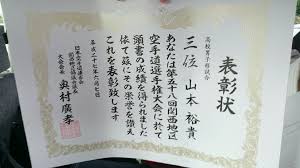 表彰状
高校男子形試合
三位 山本裕貴
あなたは第五十八回関西地区
空手道選手権大会にて
頭書の成績を得られました
依て茲にその栄誉を讃え
これを表彰致します
平成二十七年六月七日
大会会長 奥村廣孝